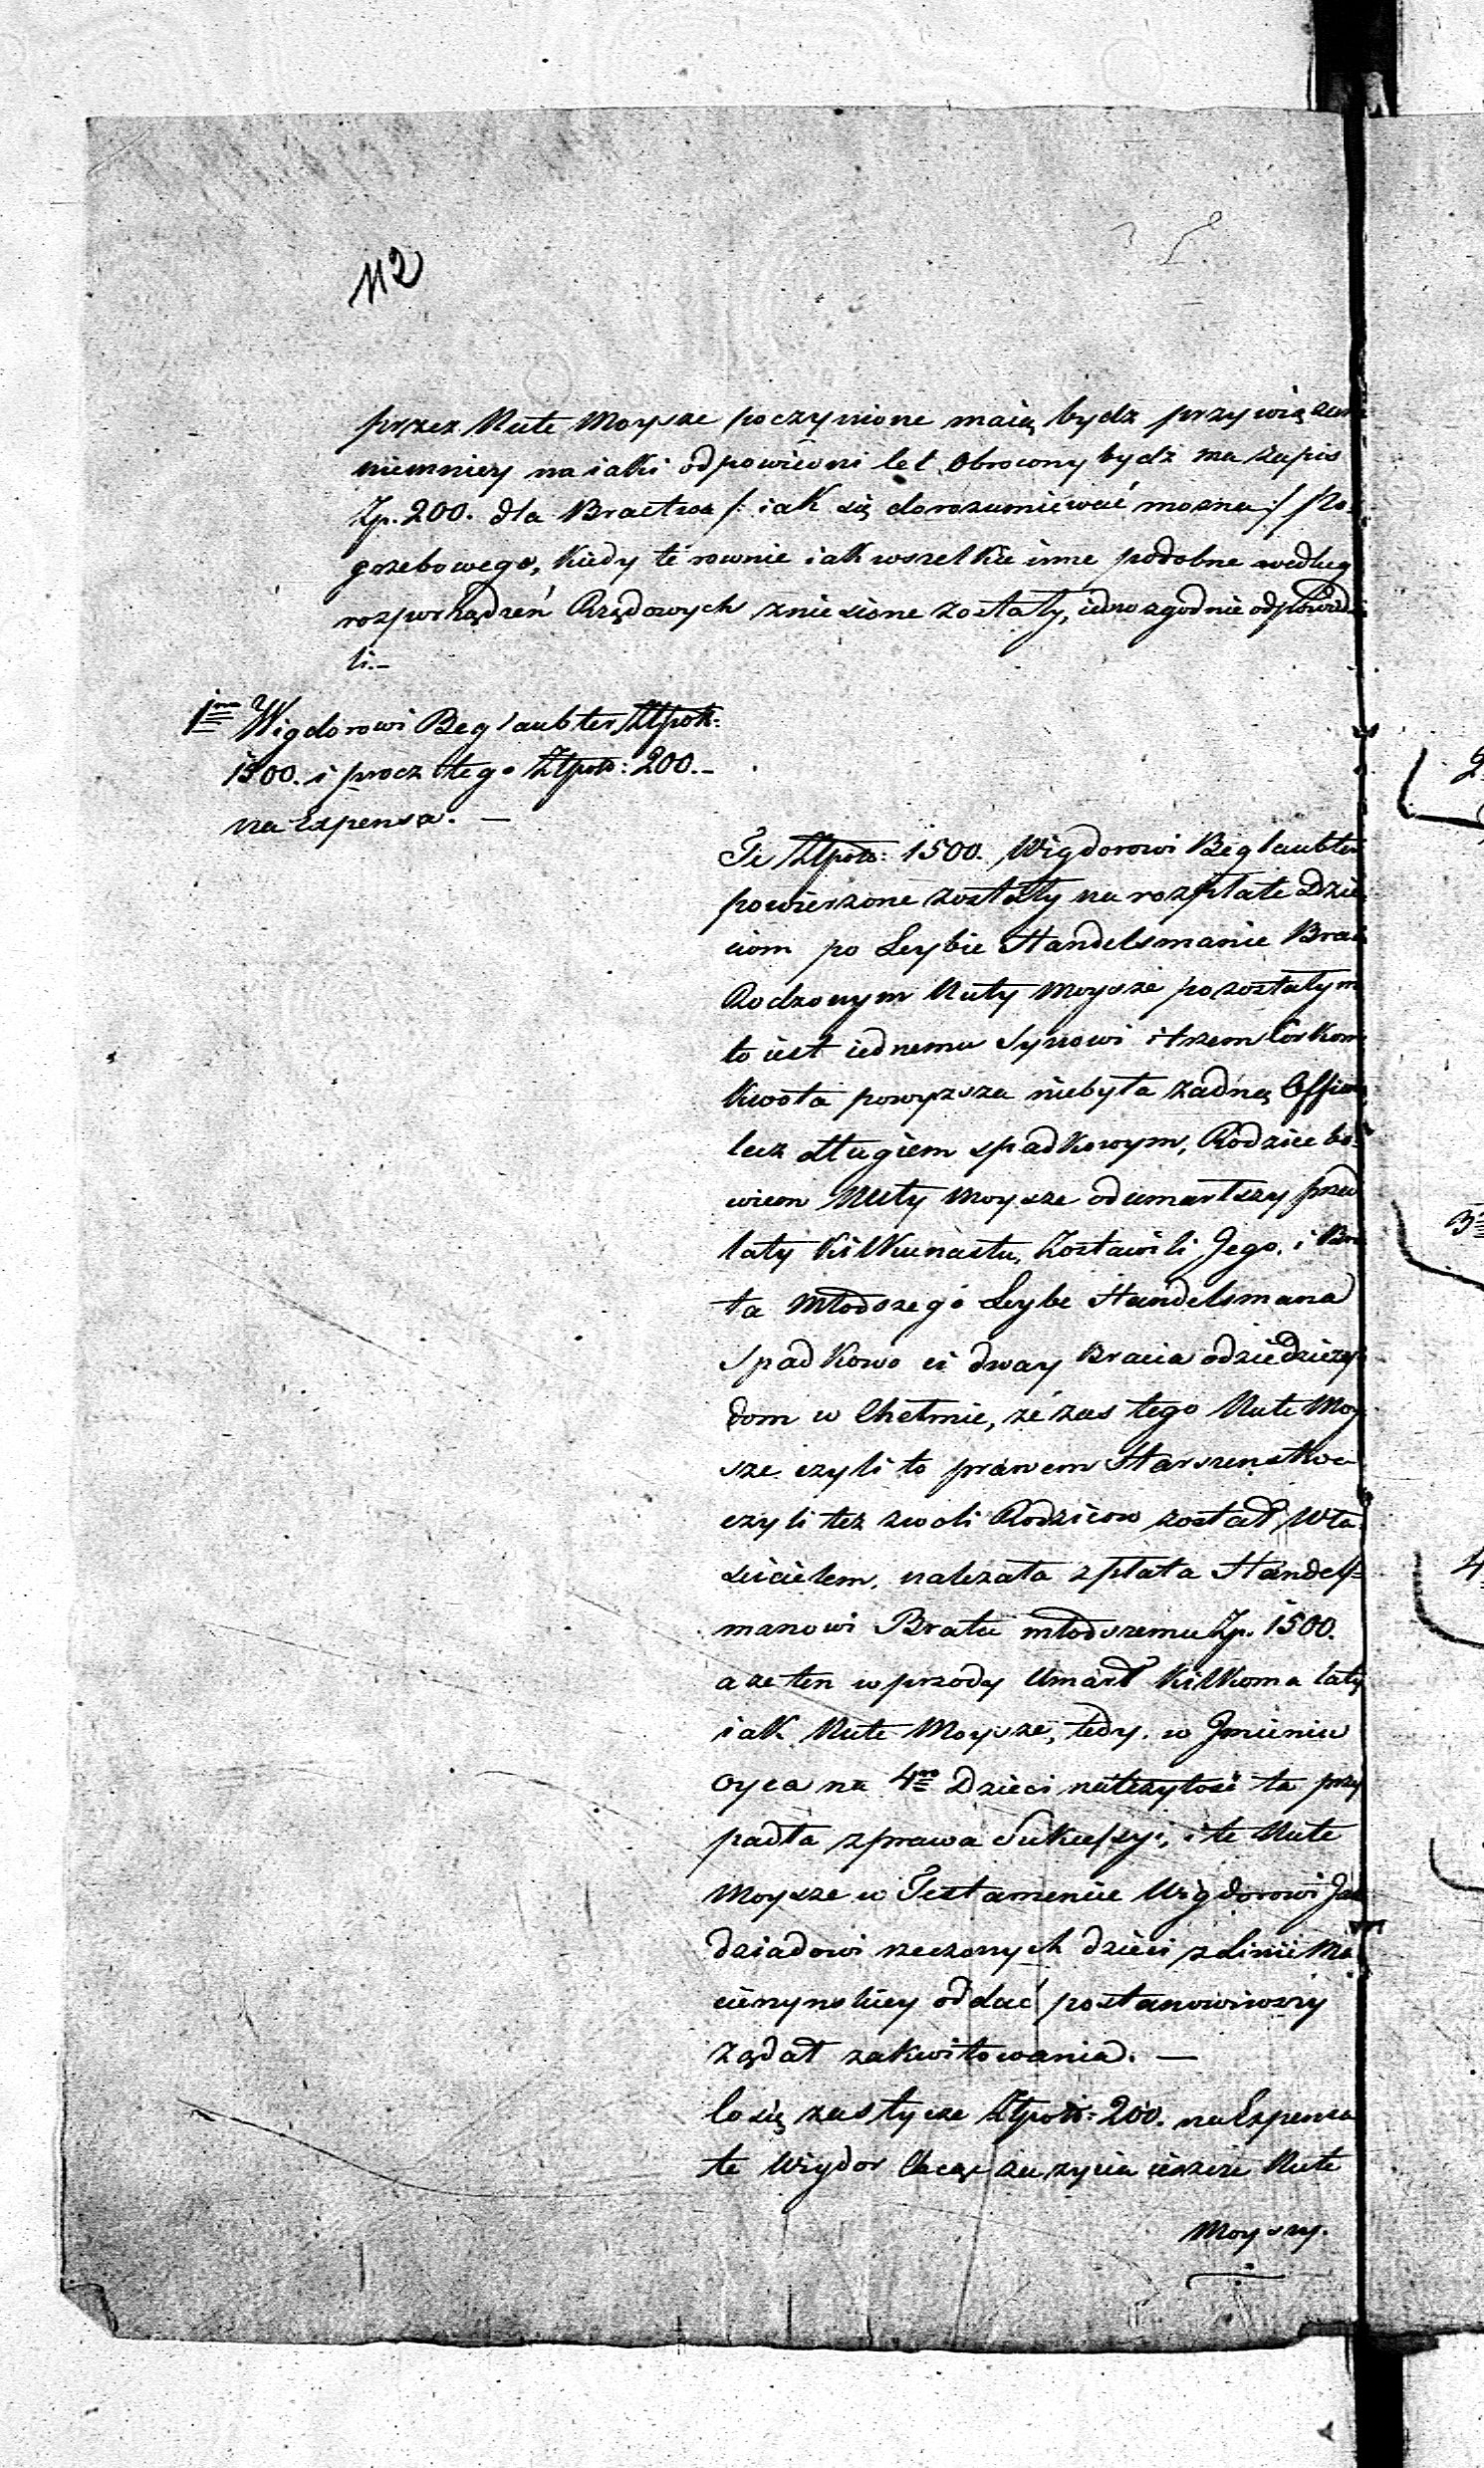 112
przez Nute Moysze poczynione maią bydz przywiązane
niemniey na iaki odpowiedni cel obrocony bydz ma Zapis
Zp. 200. dla Bractwa /: iak się dorozumiewać mozna :/ Po-
grzebowego, kiedy te rownie iak wszelkie inne podobne według
rozporządzeń Rządowych zniesione zostały, iednozgodnie odpowiedzie
li.-
1mo Wigdorowi Beglaubter Złpols:
1500. i procz tego Złpols: 200.-
na Expensa. —
Te Złpols: 1500. Wigdorowi Beglaubter
powierzone zostały na rozpłate Dzie
ciom po Leybie Handelsmanie Braci
Rodzonym Nuty Moysze pozostałym
to iest iednemu Synowi i trzem Corkom
Kwota powyzsza niebyła zadną Offiarą
lecz długiem spadkowym, Rodzice bo-
wiem Nuty Moysze odumarłszy przed
laty kilkunastu, Zostawili Jego, i Bra
ta młodszego Leybe Handelsmana
Spadkowo ci dway Bracia odziedziczyli
dom w Chełmie, ze zas tego Nute Moy
sze czyli to prawem Starszenstwa
czyli tez zwoli Rodzicow został Wła-
scicielem, nalezała zpłata Handels-
manowi Bratu młodszemu Zp. 1500.
a ze ten wprzody Umarł kilkoma laty
iak Nute Moysze, tedy, w Jmieniu
Oyca na 4ro Dzieci nalezytość ta przy
padła zprawa Sukcessyi, i te Nute
Moysze w Testamencie Wigdorowi Jako
dziadowi rzeczonych dzieci zLinii Ma
cierzynskiey oddać postanowiwszy
Ządał zakwitowania. —
Co się zas tycze Złpols: 200. na Expensa
te Wigdor Chcąc za zycia ieszcze Nute
Moyszy.